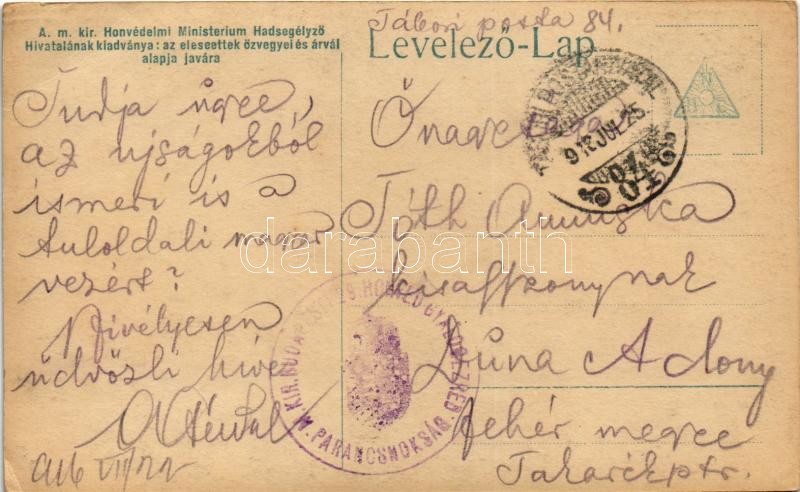 A. m. kir. Honvédelmi Ministerium Hadsegélyző
Hivatalának kiadványa: az elesettek özvegyei és árvái
alapja javára
Tábori posta 84.
Levelező-Lap
Tudja ugye,
az ujságokból
ismeri is a
tuloldali magyar
vezért?
Szivélyesen
üdvözli hive
916 VII/22
Önagysága
Tóth Annuska
kisasszonynak
Duna Adony
Fehér megye
Takarékptr.
916 JUL. 25
KIR. BUDAPESTI HONVÉD GYALOGEZRED
PARANCSNOKSÁG
darabanth